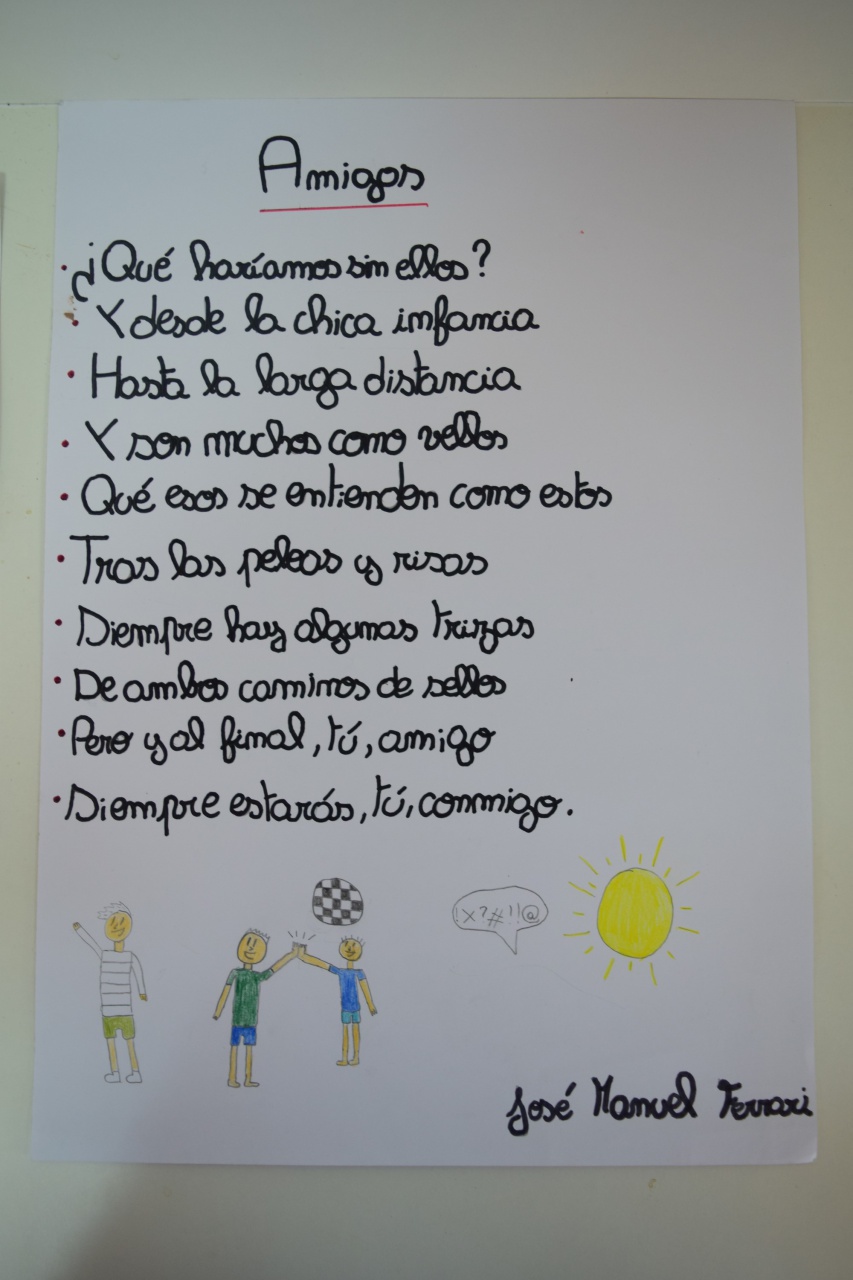 Amigos
¿Qué haríamos sin ellos?
Y desde la chica infancia
Hasta la larga distancia
Y son muchos como vellos
Qué esos se entienden como estos
Tras las peleas y risas
Siempre hay algunas trizas
De ambos caminos de sellos
Pero y al final, tú, amigo
Siempre estarás, tú, conmigo.
!x?#!!@
José Manuel Ferrari